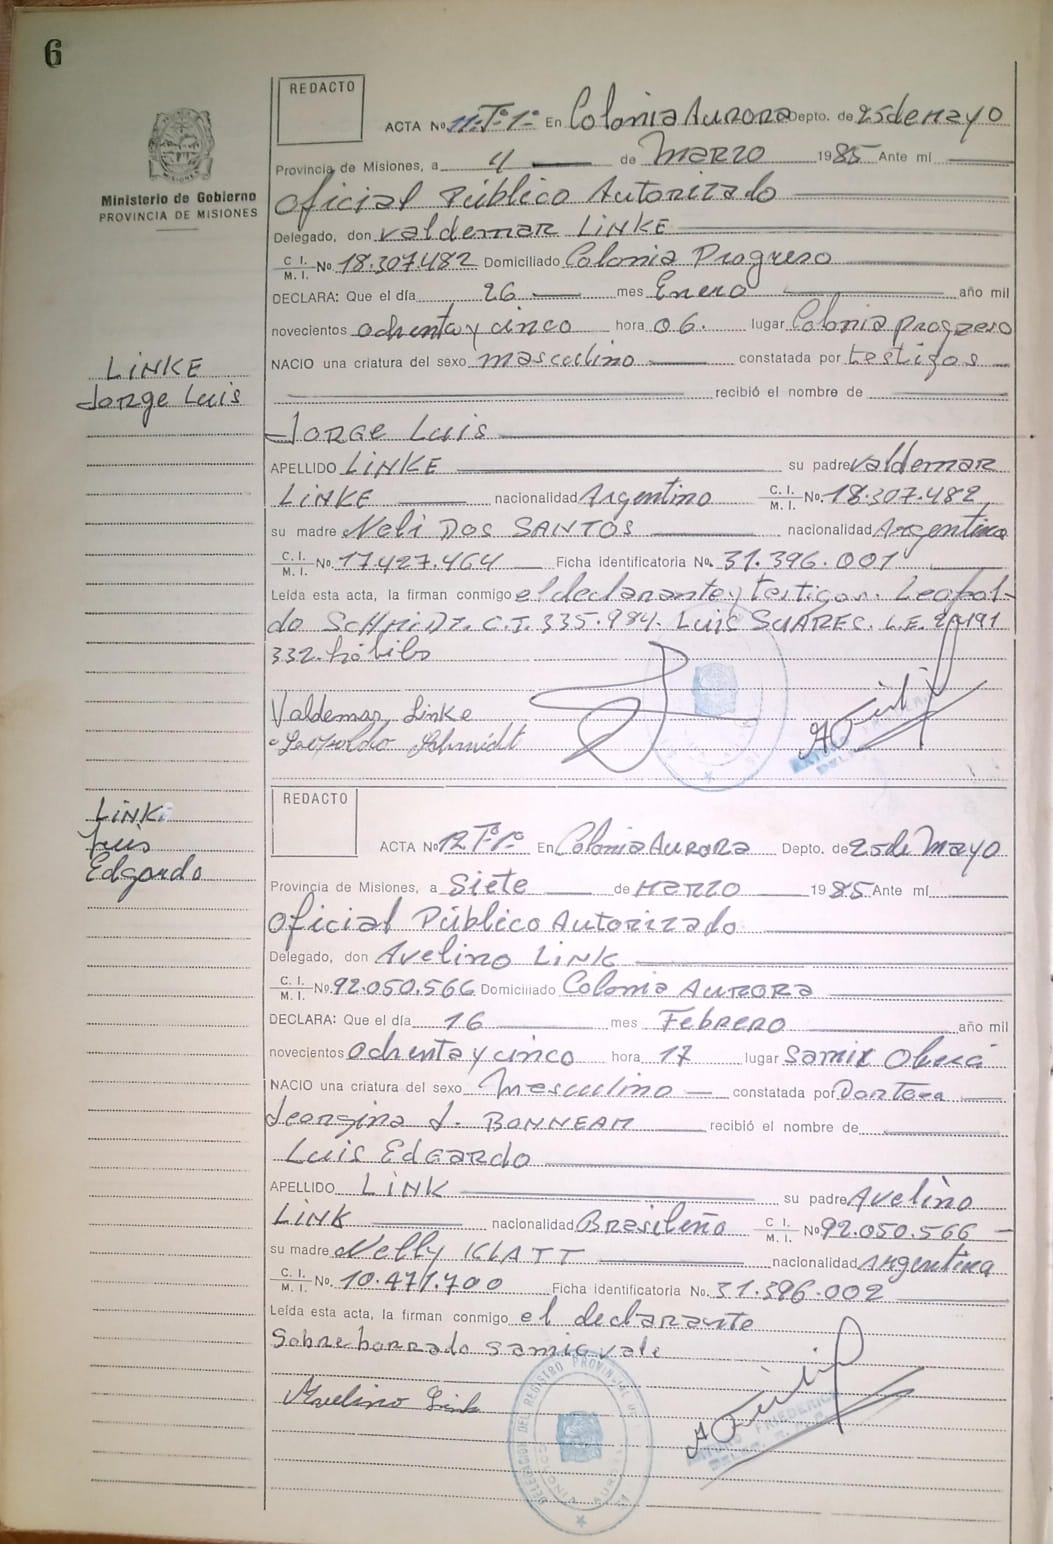 6
Ministerio de Gobierno
PROVINCIA DE MISIONES
REDACTO
ACTA No 11-Tº1º En Colonia Aurora Depto. de 25 de Mayo
Provincia de Misiones, a 4 de Marzo 1985 Ante mí
Oficial Público Autorizado
Delegado, don Valdemar LINKE
C. I. M. I. No 18.307.482 Domiciliado Colonia Progreso
DECLARA: Que el día 26 mes Enero año mil
novecientos ochenta y cinco hora 06. lugar Colonia Progreso
NACIO una criatura del sexo masculino constatada por testigos
recibió el nombre de
Jorge Luis
APELLIDO LINKE su padre Valdemar
LINKE nacionalidad Argentino C. I. M. I. No. 18.307.482
su madre Neli DOS SANTOS nacionalidad Argentina
C. I. M. I. No. 17.427.464 Ficha identificatoria No. 31.396.001
Leída esta acta, la firman conmigo el declarante y testigos. Leopol-
do SCHMIDT. C.I. 335.984. Luis SUARES. L.E. 20.191
332. hábiles
Valdemar Linke
Leopoldo Schmidt
LINKE
Jorge Luis
REDACTO
ACTA No 12 Tº1º En Colonia Aurora Depto. de 25 de Mayo
Provincia de Misiones, a Siete de Marzo 1985 Ante mí
Oficial Público Autorizado
Delegado, don Avelino LINK
C. I. M. I. No. 92.050.566 Domiciliado Colonia Aurora
DECLARA: Que el día 16 mes Febrero año mil
novecientos ochenta y cinco hora 17 lugar Samic Oberá
NACIO una criatura del sexo Masculino constatada por Doctora
BONNEAU recibió el nombre de
Luis Edgardo
APELLIDO LINK su padre Avelino
LINK nacionalidad Brasileño C. I. M. I. No 92.050.566
su madre Nelly KLATT nacionalidad Argentina
C. I. M. I. No. 10.471.700 Ficha identificatoria No. 31.396.002
Leída esta acta, la firman conmigo el declarante
Sobre borrado samic vale
Avelino Link
LINK
Luis
Edgardo